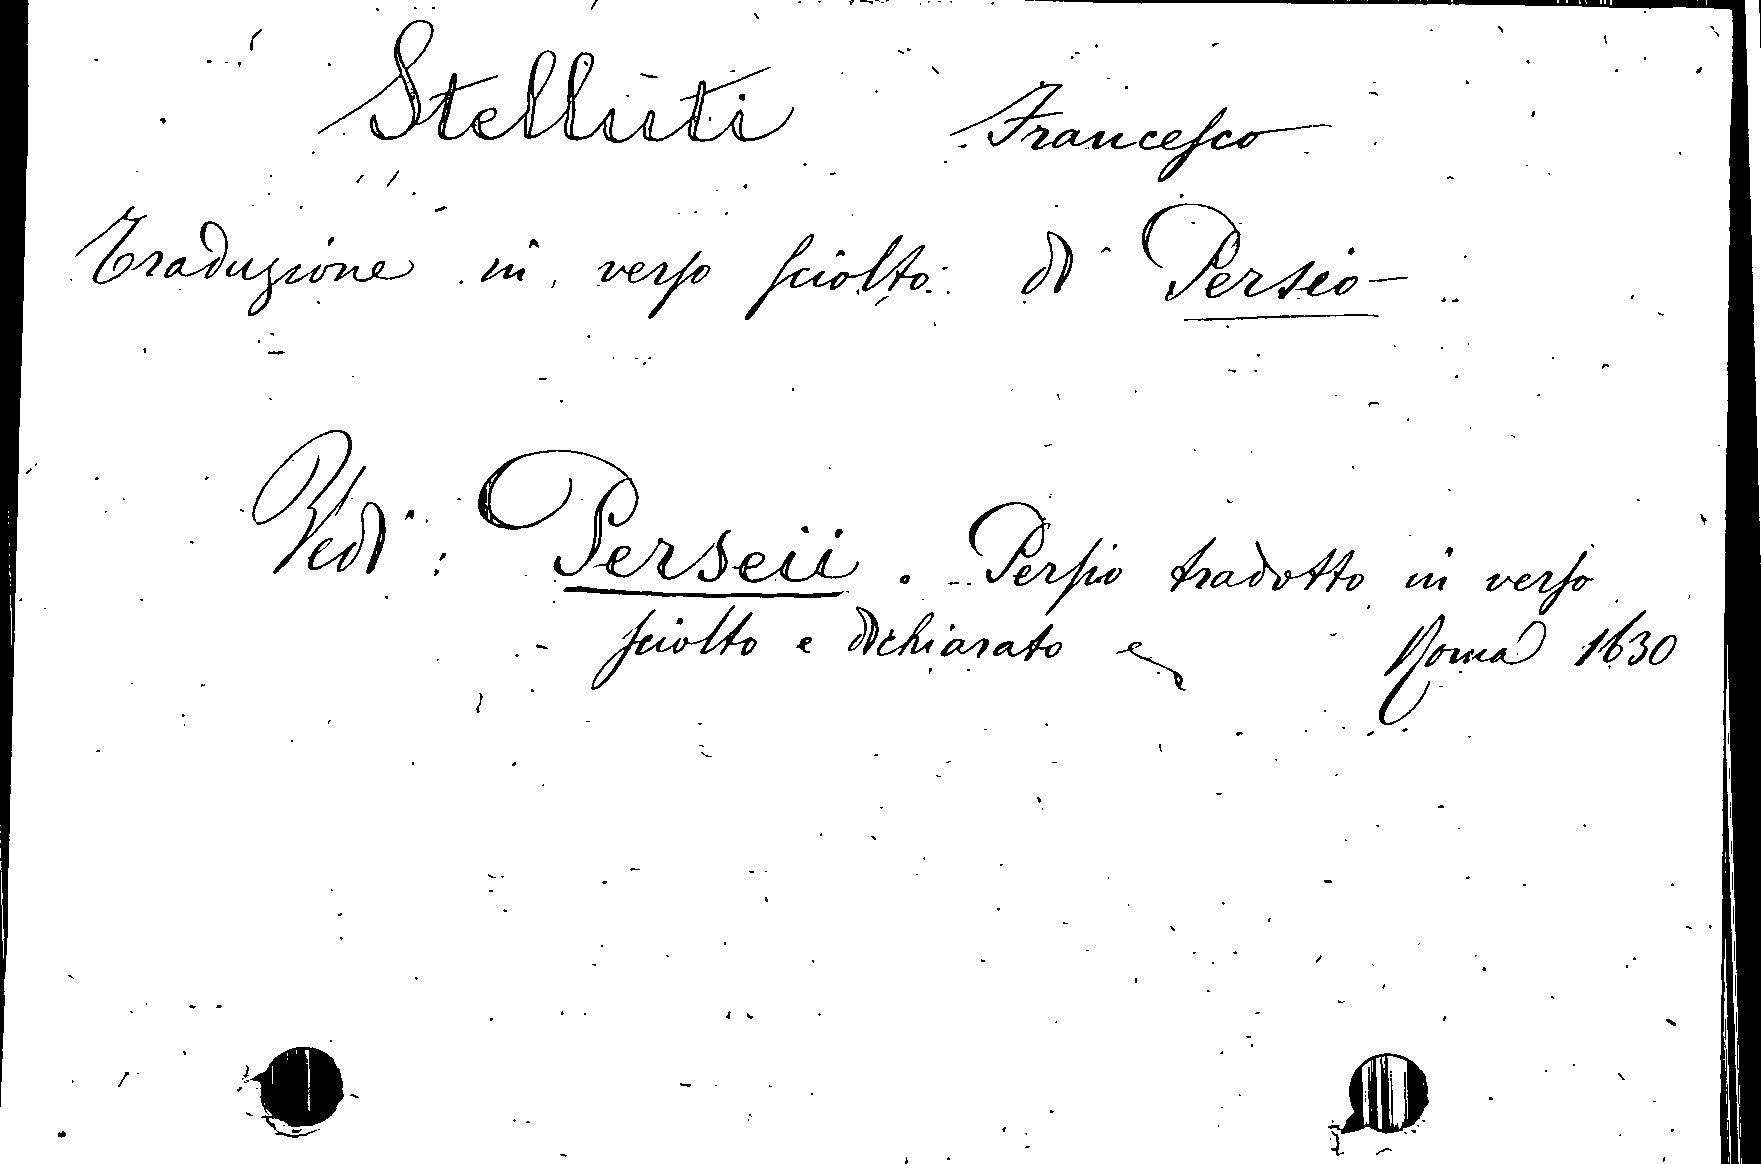 Stelluti Francesco
Traduzione in verso sciolto di Perseo -
Vedi : Perseii . Persio tradotto in verso
sciolto e dichiarato e Roma 1630